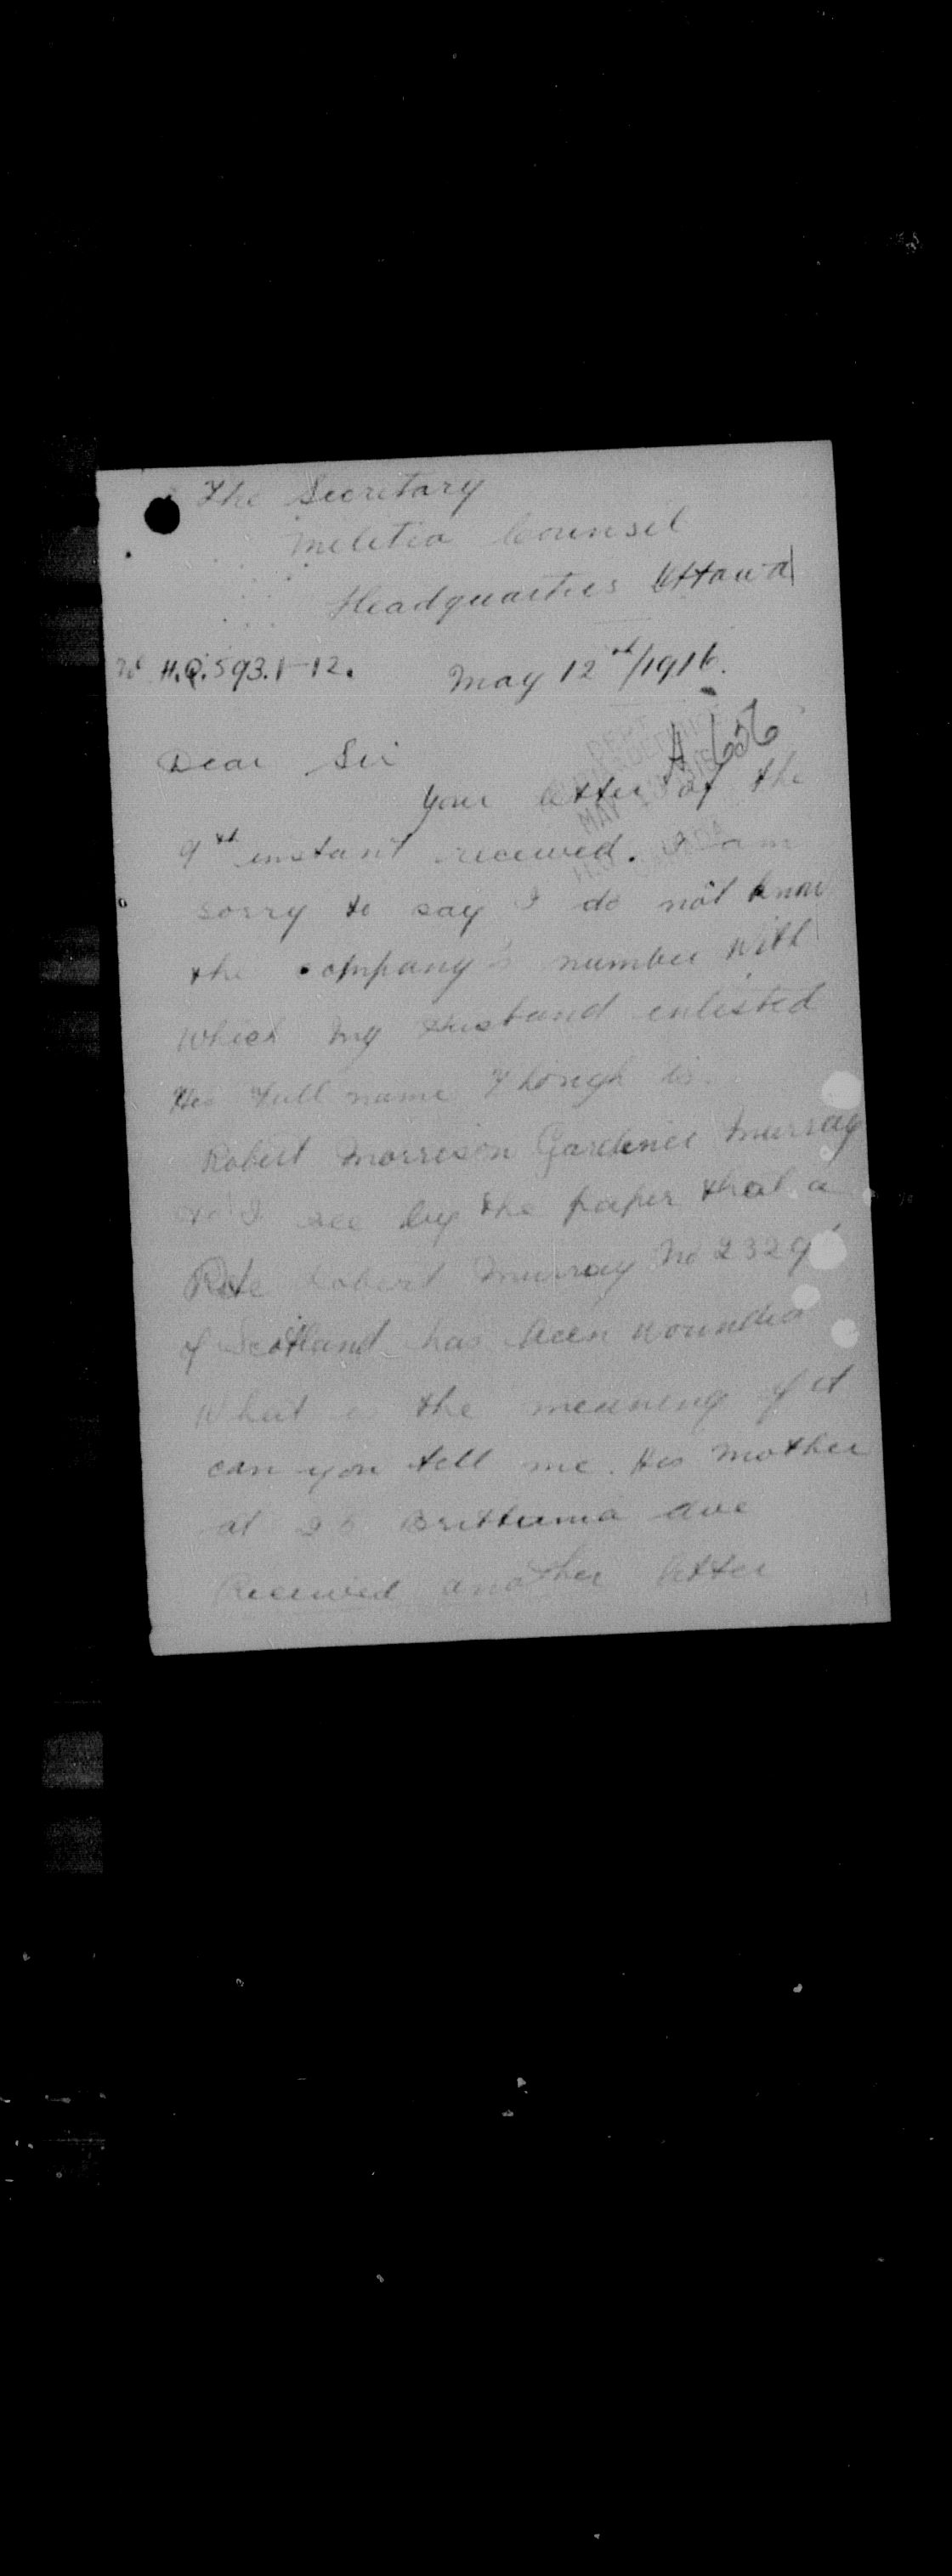 The Secretary
Meletia Counsel
Headquarters Ottawa
No H.Q. 593.1-12. May 12th/1916.
A 656
Dear Sir
Your letter of the
9th instant received. I am
sorry to say I do not know
the company's number with
which my Husband enlisted
His full name though is.
Robert Morrison Gardener Murray
I see by the paper that a
Pte Robert Murray No 2329
of Scotland has been wounded
What is the meaning of it
can you tell me. His Mother
at Ave
Received another letter